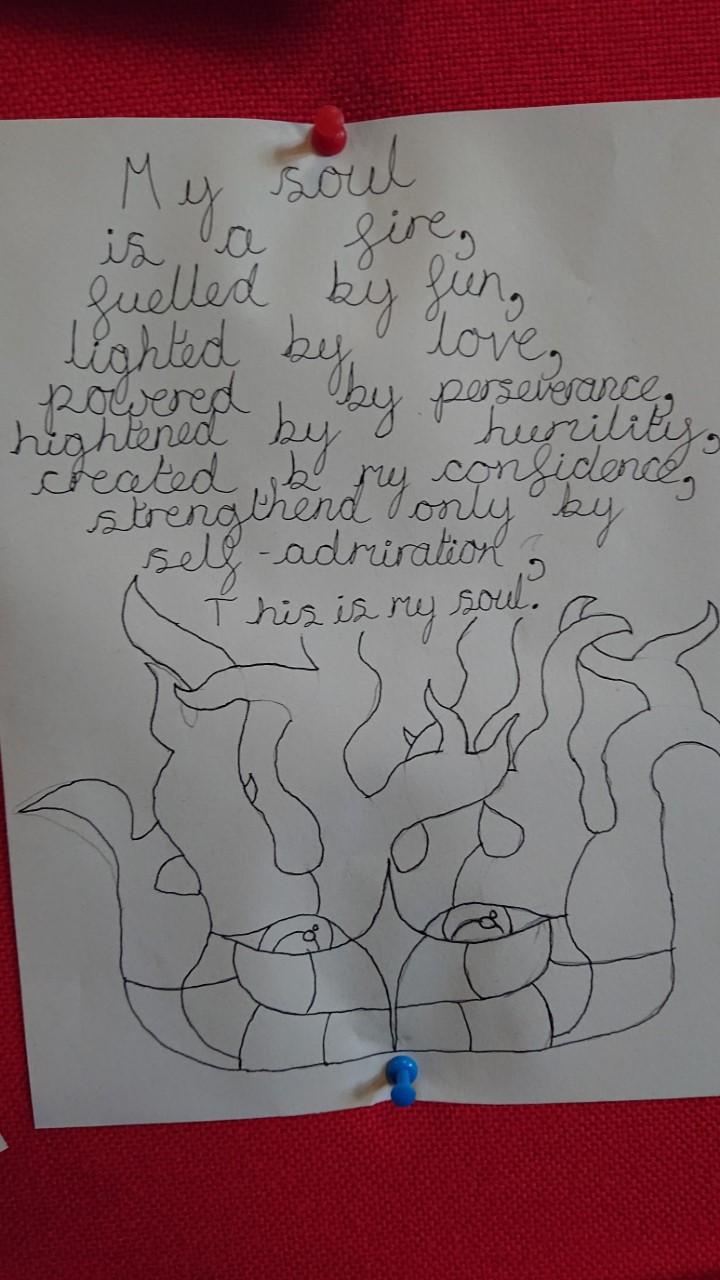 My soul
is a fire,
fuelled by fun,
lighted by love,
powered by perseverance,
hightened by humility,
created my confidence,
strengthend only by
self-admiration,
This is my soul.